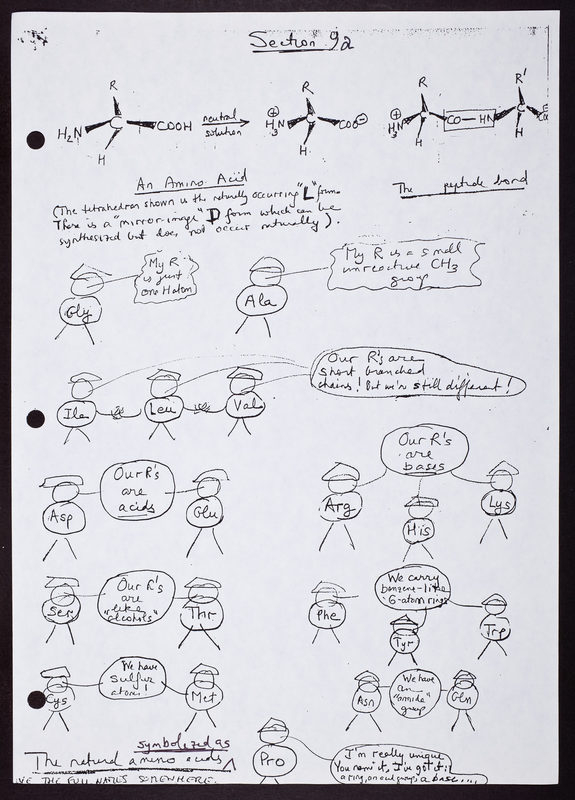 Section 9a
R
H₂N C COOH
H
neutral
solution
R
⊕
H₃N C COO⊖
H
R
⊕
H₃N C CO — HN C
H
R'
H
An Amino Acid
(The tetrahedron shown is the naturally occurring "L" form.
There is a "mirror-image" D form which can be
synthesized but does not occur naturally).
The peptide bond
Gly
My R
is just
one H atom
Ala
My R is a small
unreactive CH₃
group
Ile Leu Val
Our R's are
short branched
chains! But we're still different!
Asp
Our R's
are
acids
Glu
Our R's
are
bases
Arg
His
Lys
Ser
Our R's
are
"like
alcohols"
Thr
Phe
We carry
benzene-like
6-atom rings
Tyr
Trp
Cys
We have
sulfur
atoms!
Met
Asn
We have
an
"amide"
group
Gln
Pro
I'm really unique
You name it, I've got it:
a ring, an acid group, a base....
symbolized as
The natural amino acids ^
THE FULL NAMES SOMEWHERE.